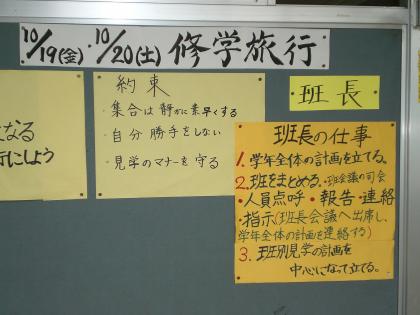 10/19(金)・10/20(土) 修学旅行
なる
行にしよう
約束
・集合は静かに素早くする
・自分勝手をしない
・見学のマナーを守る
班長
班長の仕事
1.学年全体の計画を立てる。
2.班をまとめる。・班会議の司会
・人員点呼・報告・連絡
・指示(班長会議へ出席し、
学年全体の計画を連絡する)
3.班別見学の計画を
中心になって立てる。